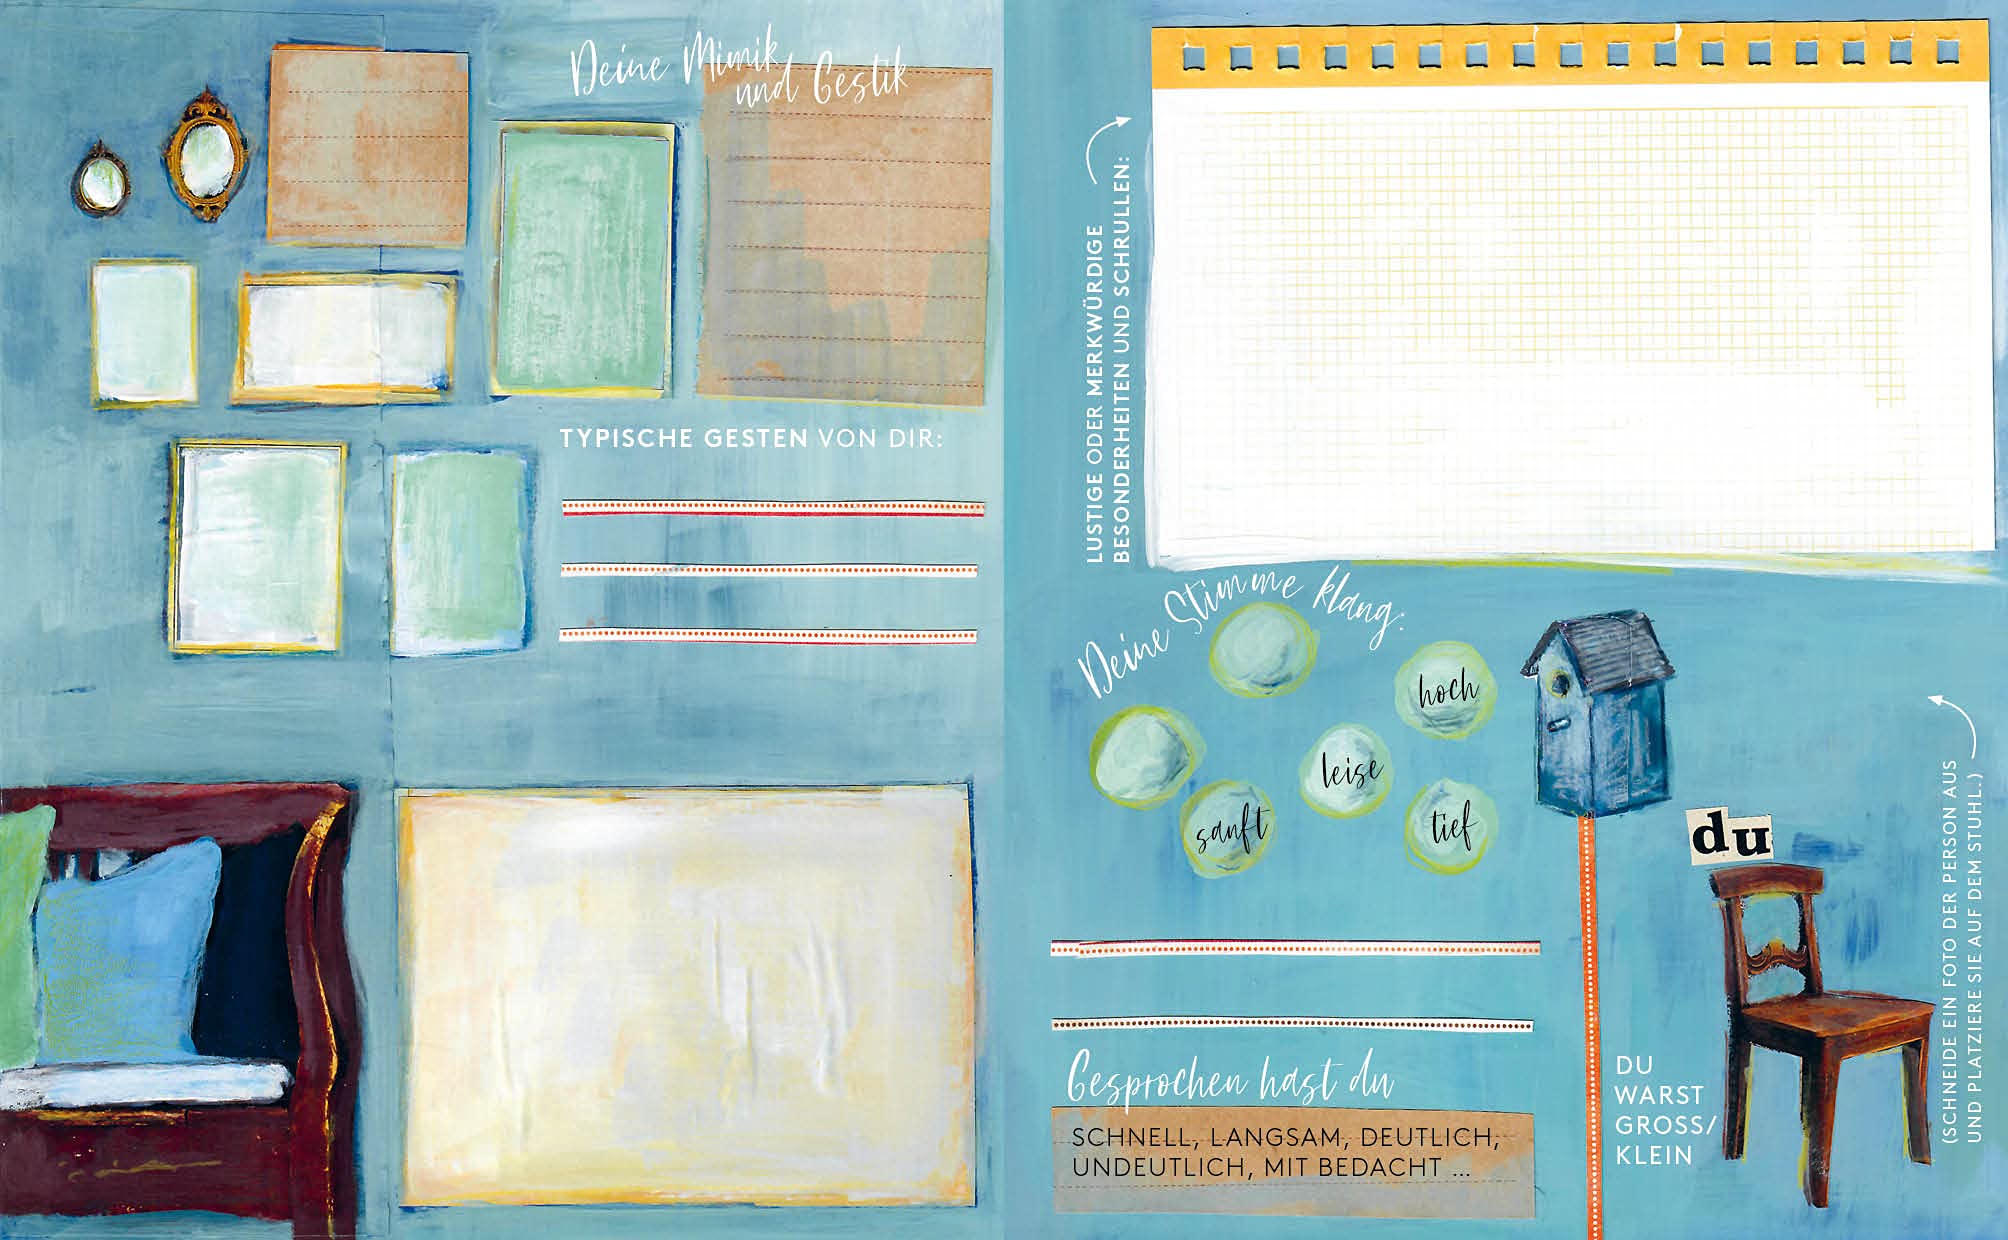 Deine Mimik
und Gestik
TYPISCHE GESTEN VON DIR:
LUSTIGE ODER MERKWÜRDIGE
BESONDERHEITEN UND SCHRULLEN:
Deine Stimme klang:
hoch
leise
sanft
tief
du
Gesprochen hast du
SCHNELL, LANGSAM, DEUTLICH,
UNDEUTLICH, MIT BEDACHT ...
DU
WARST
GROSS/
KLEIN
(SCHNEIDE EIN FOTO DER PERSON AUS
UND PLATZIERE SIE AUF DEM STUHL.)